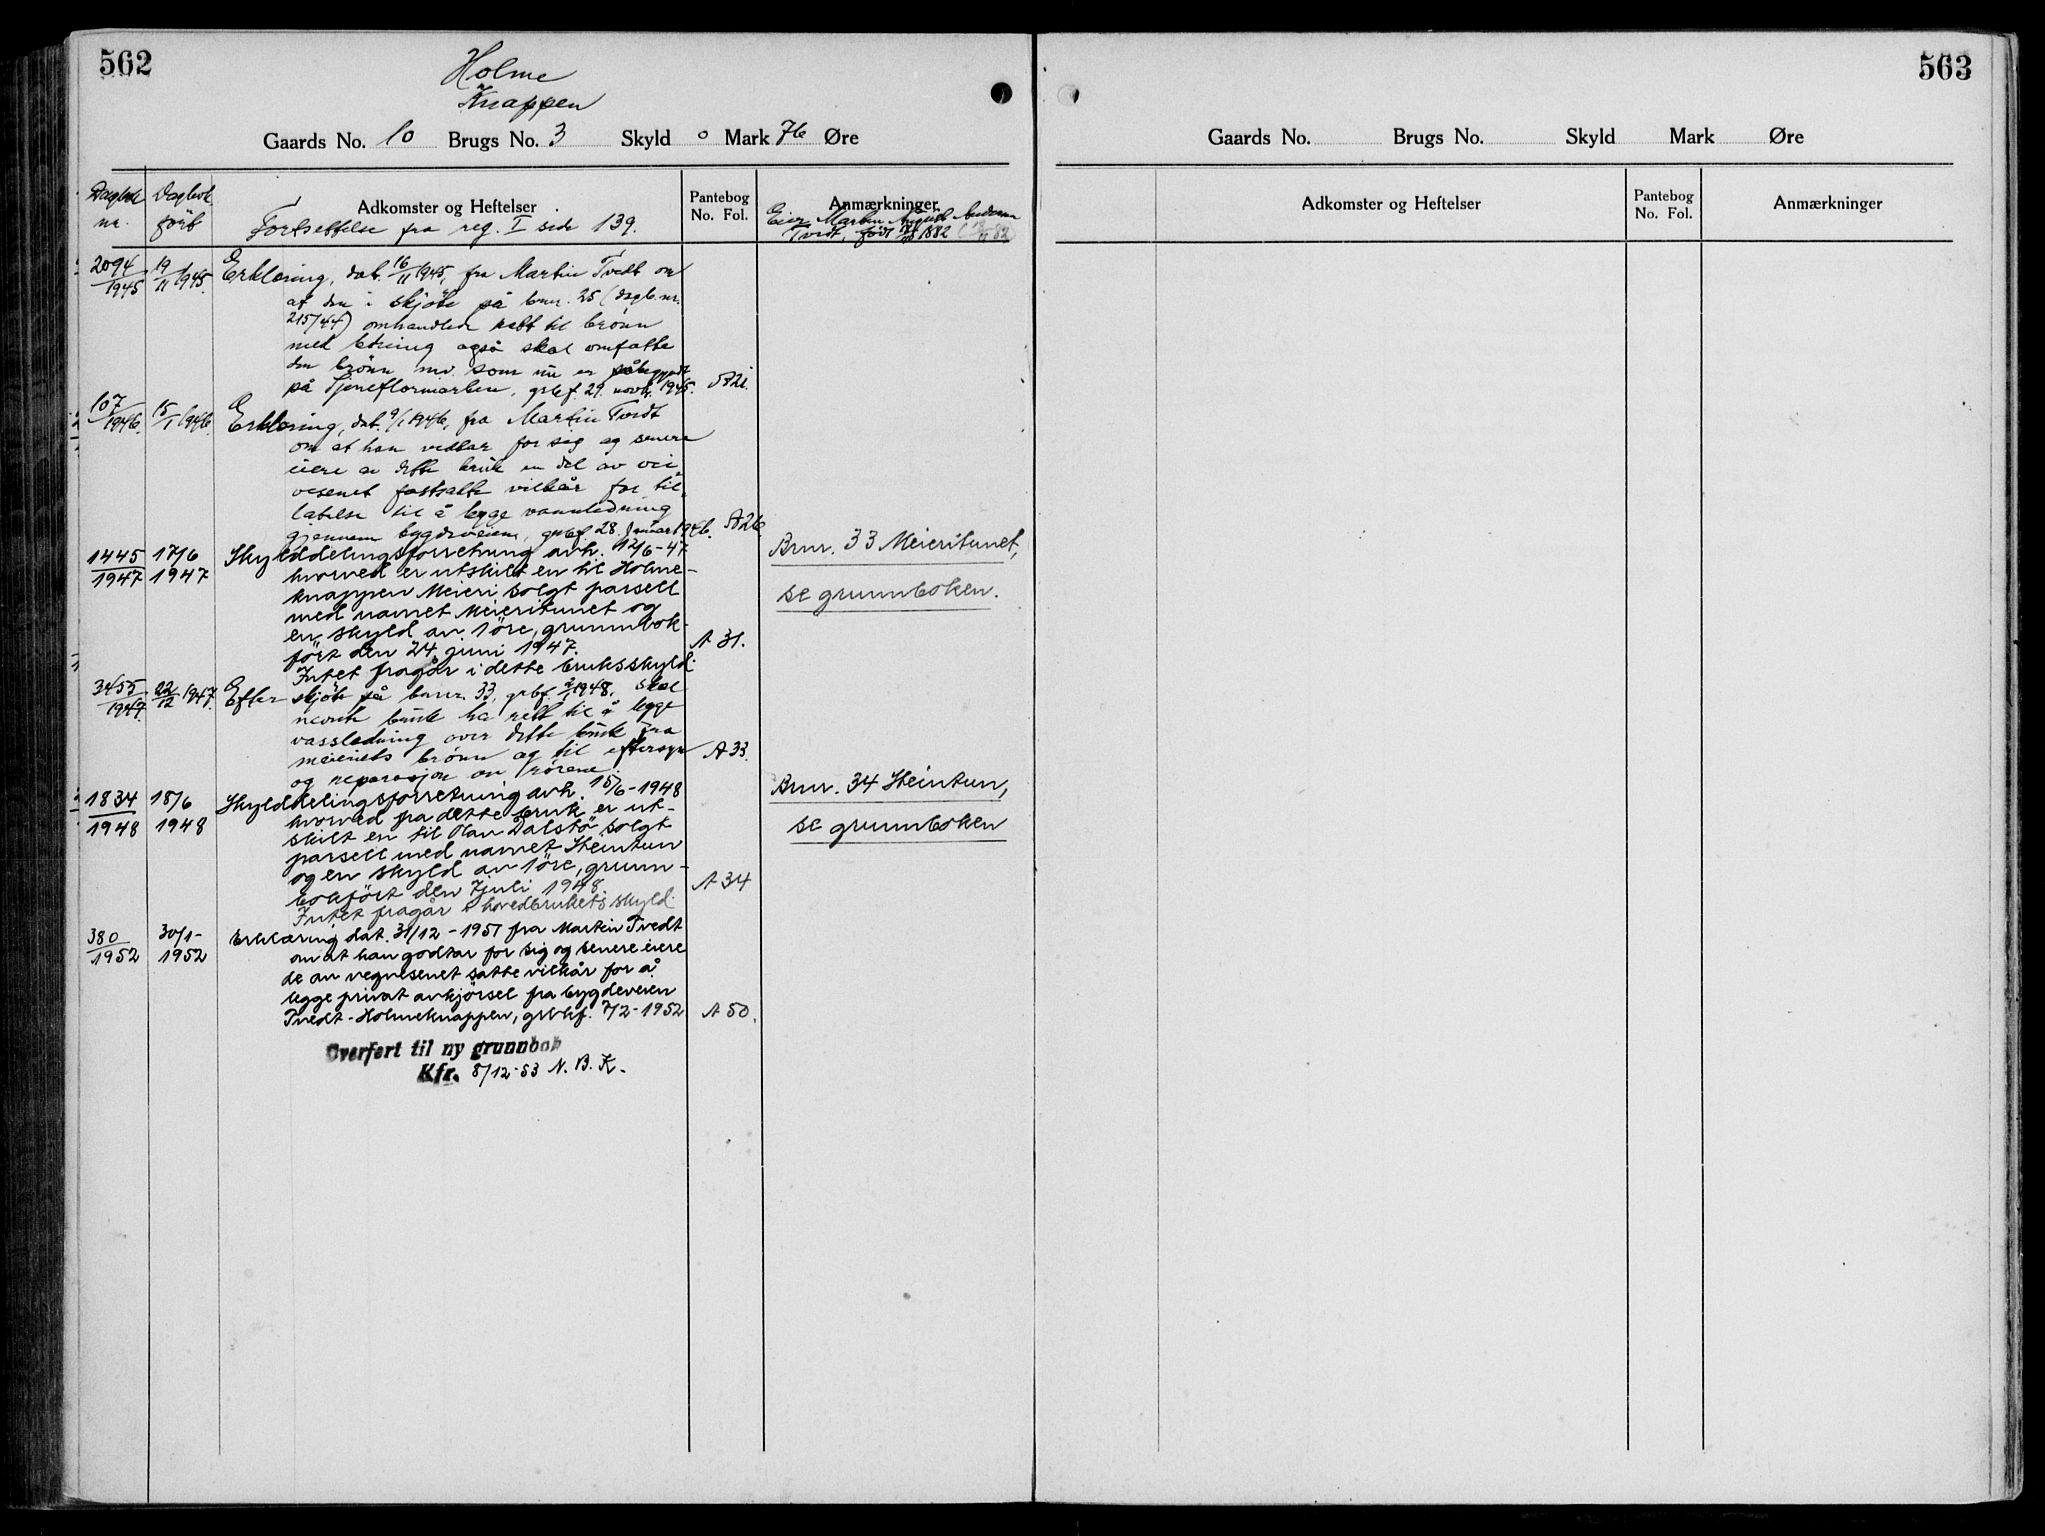 562
Holme
Knappen
Gaards No. 10 Brugs No. 3 Skyld 0 Mark 76 Øre
Dagbok nr. Dagbok förb Adkomster og Heftelser Pantebog No. Fol. Anmærkninger
Fortsettelse fra reg. I side 139.
Eier Martin August Andersen
Tvedt, født 1882
2094/1945 19/11 1945. Erklæring, dat. 16/11 1945, fra Martin Tvedt om
at den i skjöte på bnr. 25 (dagb.nr.
215/44) omhandlede rett til brönn
med ledning også skal omfatte
den brönn mv. som nu er påbegynt
på Tjoreflormarken, grbf. 29. novbr. 1945. A 21.
107/1946. 15/1 1946. Erklæring, dat. 9/1 1946, fra Martin Tvedt
om at han vedtar for sig og senere
eiere av dette bruk en del av vei-
vesenet fastsatte vilkår for til-
latelse til å legge vannledning
gjennem bygdeveien, grbf. 28. januar 1946. A 26
1445/1947 17/6 1947 Skylddelingsforretning avh. 12/6-47
hvorved er utskilt en til Holme-
knappen Meieri solgt parsell
med navnet Meieritunet og
en skyld av 1 öre, grunnbok-
fört den 24. juni 1947. A 31.
Intet fragår i dette bruksskyld.
Bnr. 33 Meieritunet,
se grunnboken.
3455/1947. 22/12 1947. Efter skjöte på bnr. 33, grbf. 2/1 1948, skal
nevnte bruk ha rett til å legge
vassledning over dette bruk fra
meieriets brönn og til eftersyn A 33.
og reparasjon av rörene.
1834/1948 18/6 1948 Skylddelingsforretning avh. 15/6-1948
hvorved fra dette bruk er ut-
skilt en til Olav Dalstö solgt
parsell med navnet Steintun
og en skyld av 1 öre, grunn-
bokfört den 7 juli 1948 A 34
Intet fragår i hovedbrukets skyld.
Bnr. 34 Steintun,
se grunnboken
380/1952 30/1-1952 Erklæring dat. 31/12-1951 fra Martin Tvedt
om at han godtar for sig og senere eiere
de av vegvesenet satte vilkår for å
legge privat avkjörsel fra bygdeveien
Tvedt-Holmeknappen, grbkf. 7/2-1952 A 50.
Overført til ny grunnbok
Kfr. 8/12-53 N. B. K.
563
Gaards No. Brugs No. Skyld Mark Øre
Adkomster og Heftelser Pantebog No. Fol. Anmærkninger